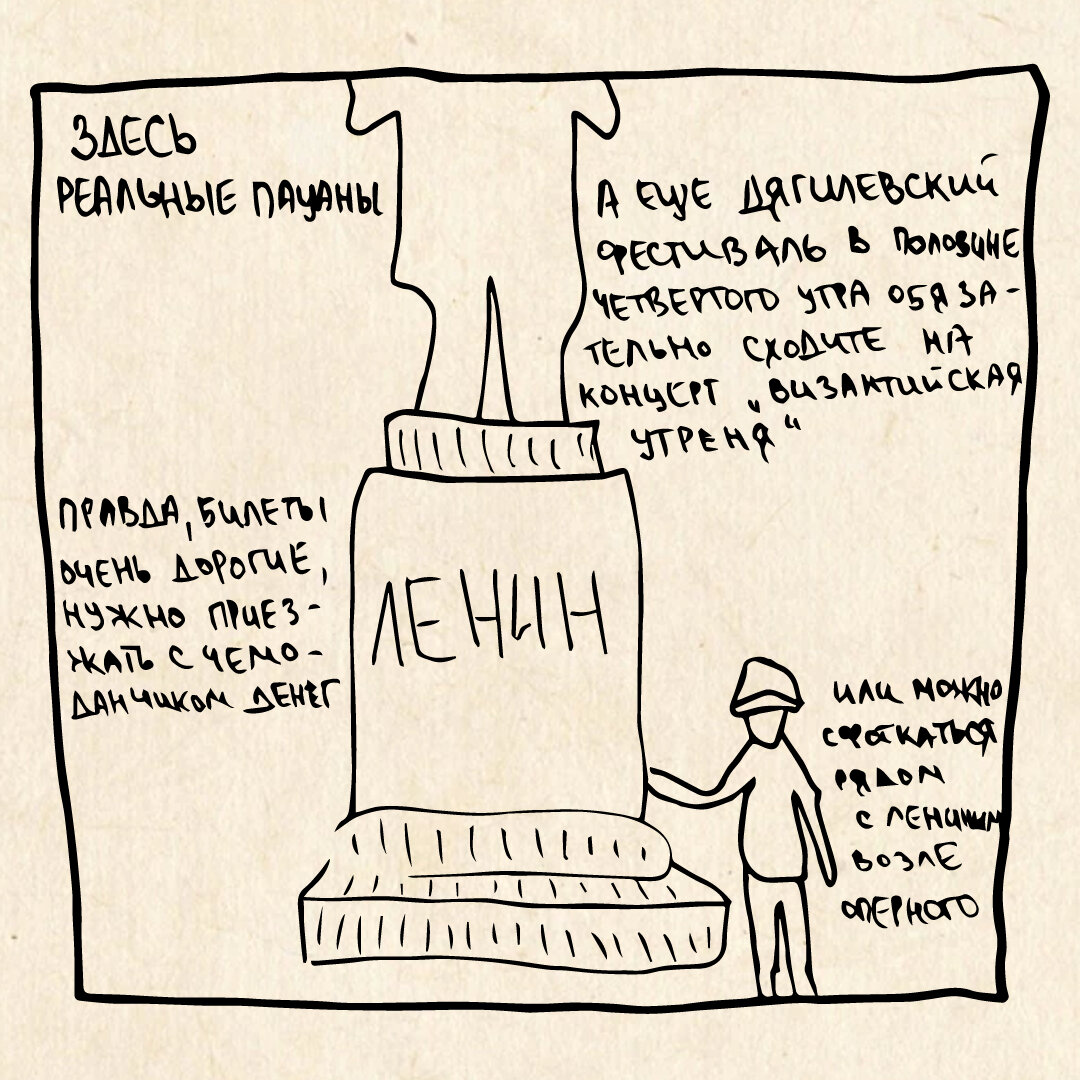 ЗДЕСЬ
РЕАЛЬНЫЕ ПАЦАНЫ
А ЕЩЕ ДЯГИЛЕВСКИЙ
ФЕСТИВАЛЬ В ПОЛОВИНЕ
ЧЕТВЕРТОГО УТРА ОБЯЗА-
ТЕЛЬНО СХОДИТЕ НА
КОНЦЕРТ „ВИЗАНТИЙСКАЯ
УТРЕНЯ“
ПРАВДА, БИЛЕТЫ
ОЧЕНЬ ДОРОГИЕ,
НУЖНО ПРИЕЗ-
ЖАТЬ С ЧЕМО-
ДАНЧИКОМ ДЕНЕГ
ЛЕНИН
ИЛИ МОЖНО
СФОТКАТЬСЯ
РЯДОМ
С ЛЕНИНЫМ
ВОЗЛЕ
ОПЕРНОГО